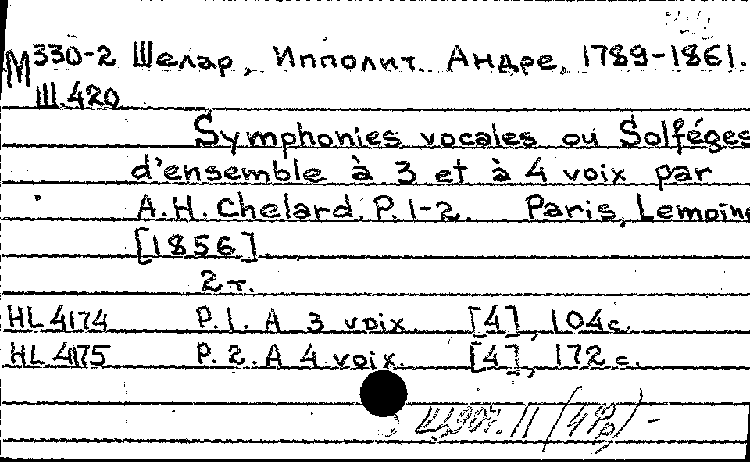 М 330-2 Шелар, Ипполит Андре, 1789-1861.
Ш 420
Symphonies vocales ou Solféges
d'ensemble à 3 et à 4 voix par
A.H. Chelard. P. 1-2. Paris, Lemoine
[1856].
2 т.
HL 4174 P. 1. A 3 voix. [4], 104 с.
HL 4175 P. 2. A 4 voix. [4], 172 с.